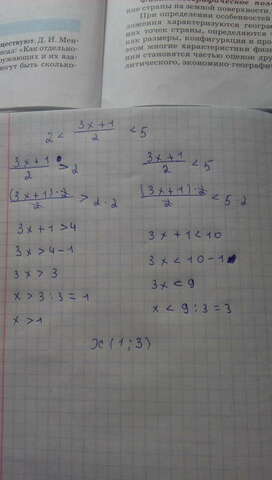 ществуют. Д. И. Мен-
«Как отдельно-
ружающих и их вза-
могут быть сколько-
ние страны на земной поверхности,
При определении особенностей
ложения характеризуются геогра-
них точек страны, определяются
как размеры, конфигурация и пр
этом многие характеристики физи
нии становятся частью оценок др
литического, экономико-географи
2 < 3x+1/2 < 5
3x+1/2 > 2
(3x+1)·2/2 > 2·2
3x+1>4
3x>4-1
3x>3
x>3:3=1
x>1
3x+1/2 < 5
(3x+1)·2/2 < 5·2
3x+1<10
3x<10-1
3x<9
x<9:3=3
x(1;3)